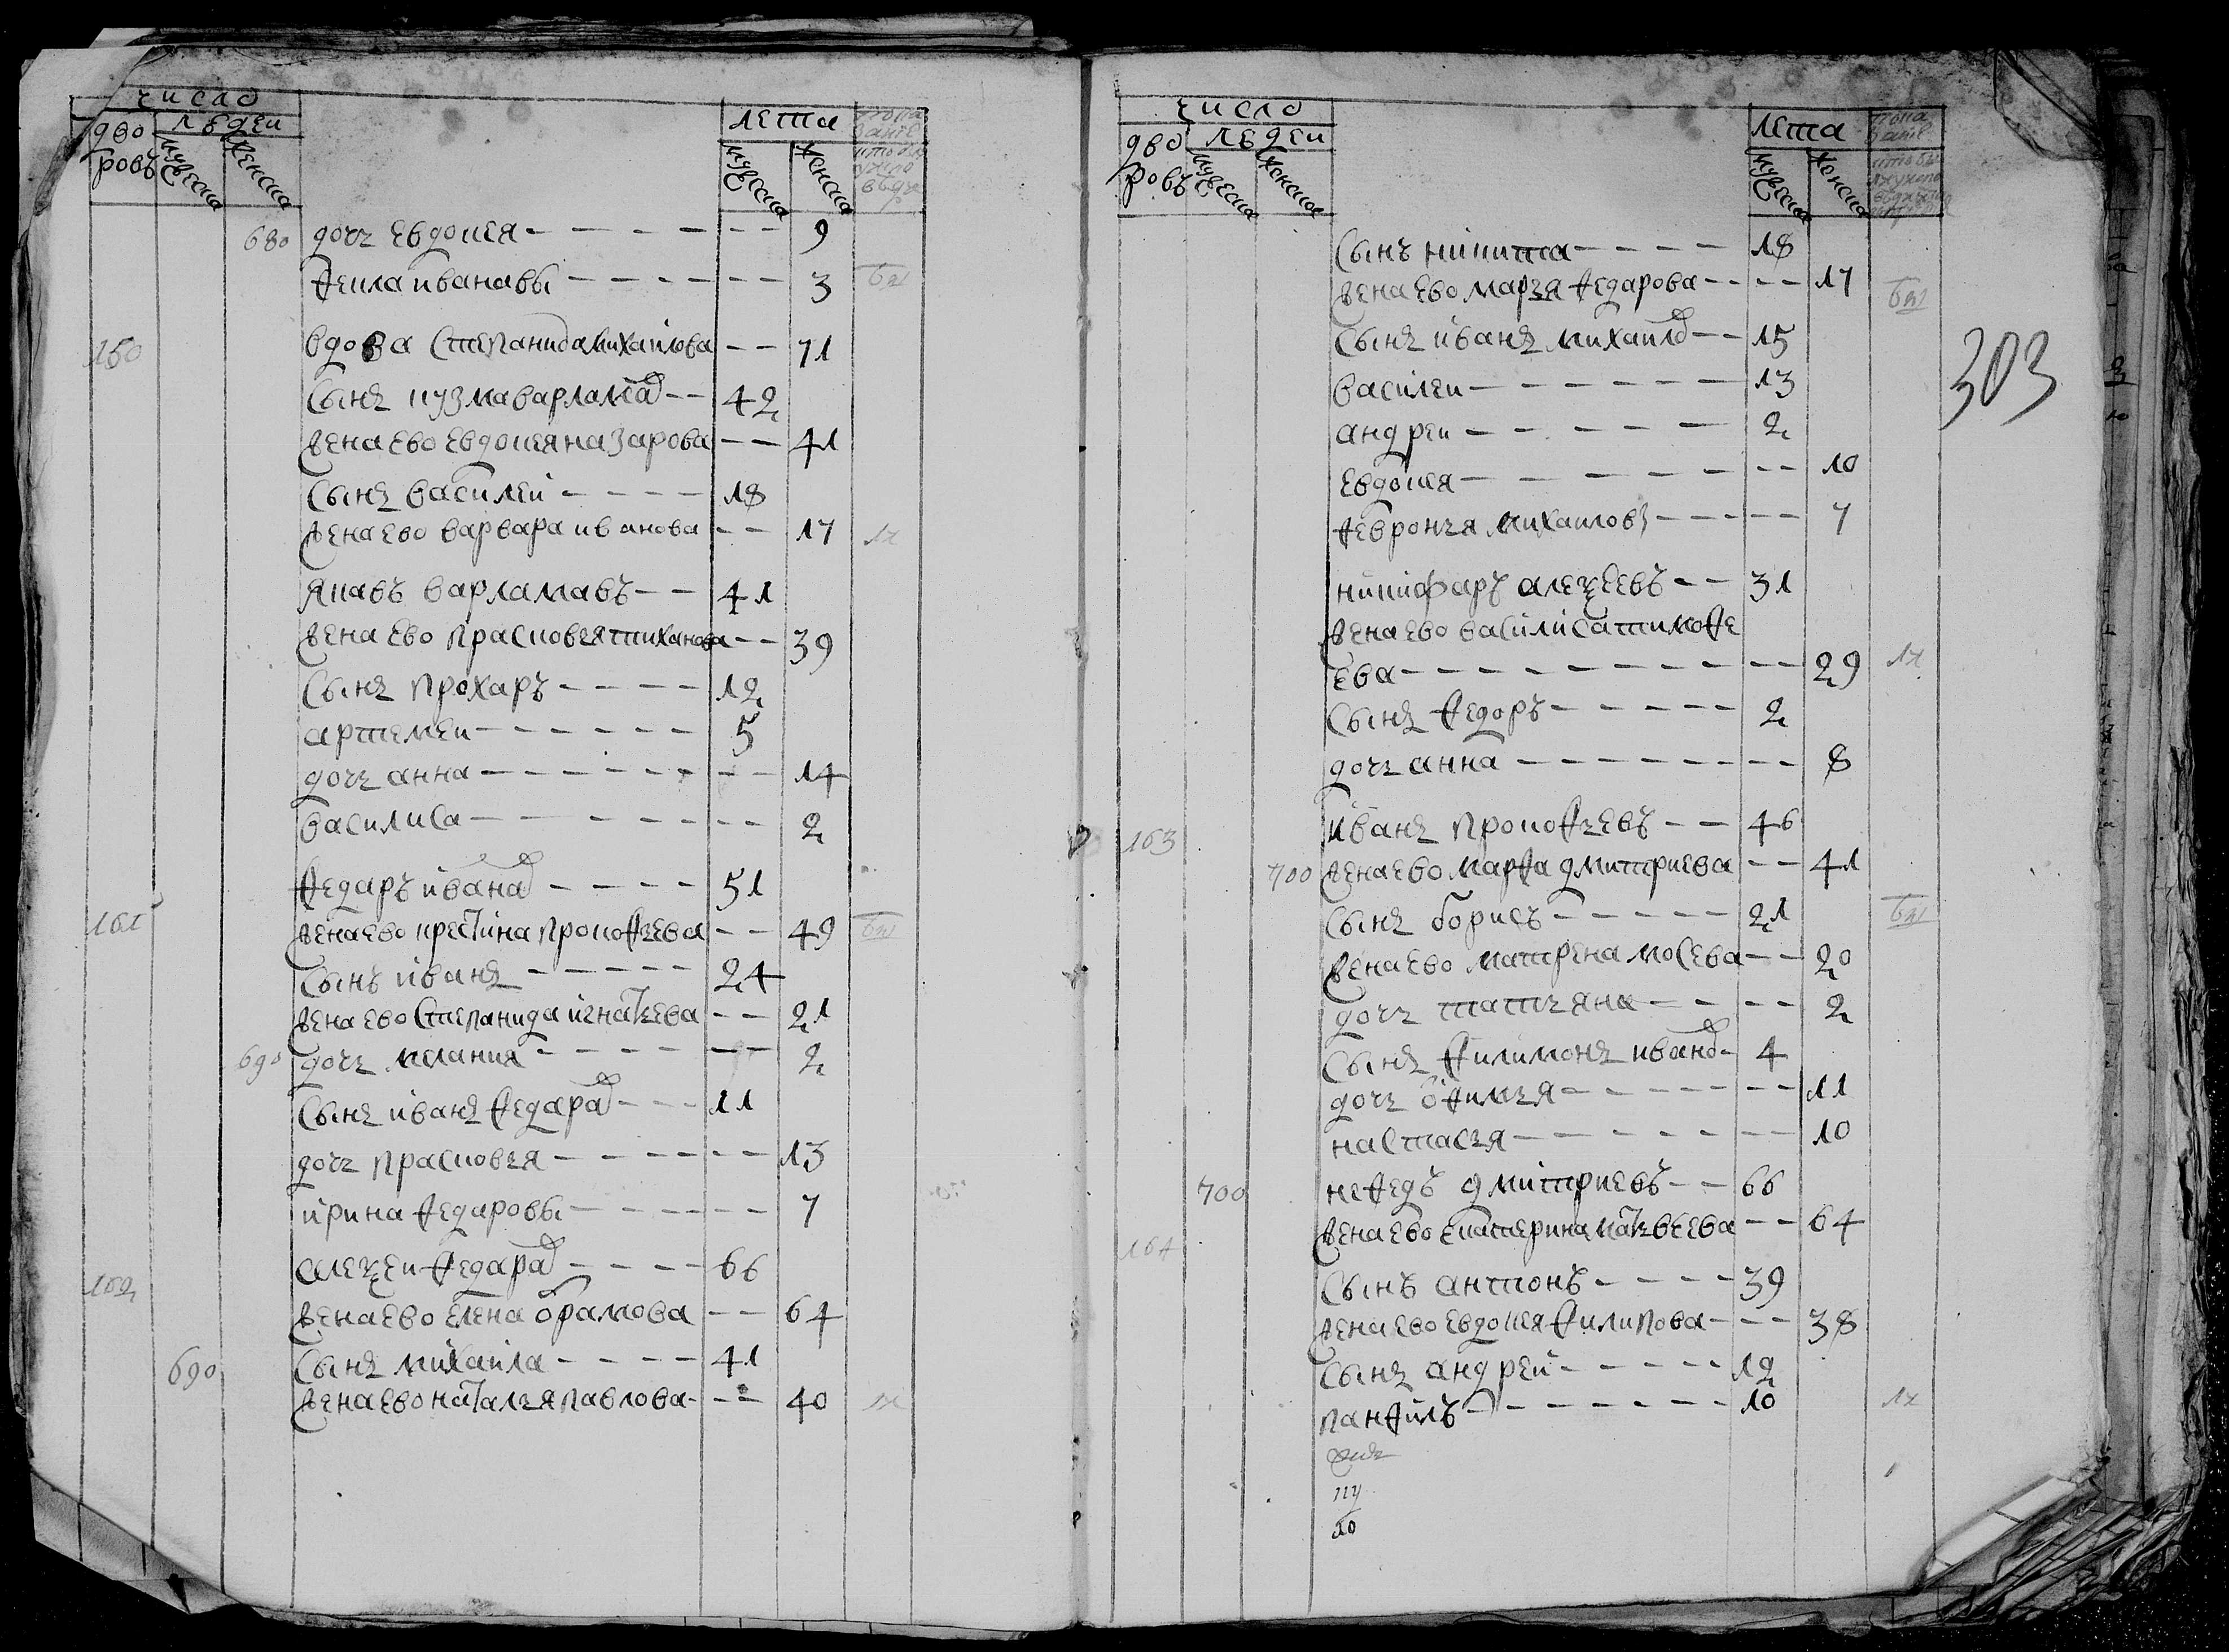 число
дворовъ
людеи
мужеска
женска
лета
мужеска
женска
680 дочь Евдокея - - 9
Фекла ивановы - - 3 бы
160 вдова Степанида михаилова - - 71
Сынъ кузма варламов - - 42
жена ево Евдокея назарова - - 41
Сынъ василеи - - 18
жена ево варвара иванова - - 17
яковъ варламавъ - - 41
жена ево прасковья тиханова - - 39
Сынъ прохаръ - - 12
артемеи - - 5
дочь анна - - 14
василиса - - 2
Федаръ иванов - - 51
161 жена ево крестина прокофьева - - 49 бы
Сынъ иванъ - - 24
жена ево Степанида игнатьева - - 21
690 дочь мелания - - 2
Сынъ иванъ Федаров - - 11
дочь прасковья - - 13
ирина Федаровы - - 7
алеѯеи Федаров - - 66
162 жена ево елена абрамова - - 64
690 Сынъ михаила - - 41
жена ево наталья павлова - - 40
число
дворовъ
людеи
мужеска
женска
лета
мужеска
женска
303
Сынъ никита - - 18
жена ево марья Федарова - - 17 бы
Сынъ иванъ михаилов - - 15
василеи - - 13
андреи - - 2
Евдокея - - 10
Февронья михаиловы - - 7
никифаръ алеѯеевъ - - 31
жена ево василиса тимофе
ева - - 29
Сынъ Федоръ - - 2
дочь анна - - 8
163 иванъ прокофьевъ - - 46
700 жена ево марфа дмитриева - - 41
Сынъ борисъ - - 21 бы
жена ево матрена мосева - - 20
дочь татьяна - - 2
Сынъ Филимонъ иванов - - 4
дочь офимья - - 11
настасья - - 10
700 нефедъ дмитриевъ - - 66
164 жена ево екатерина матвеева - - 64
Сынъ антонъ - - 39
жена ево Евдокея Филипова - - 38
Сынъ андреи - - 12
панфилъ - - 10